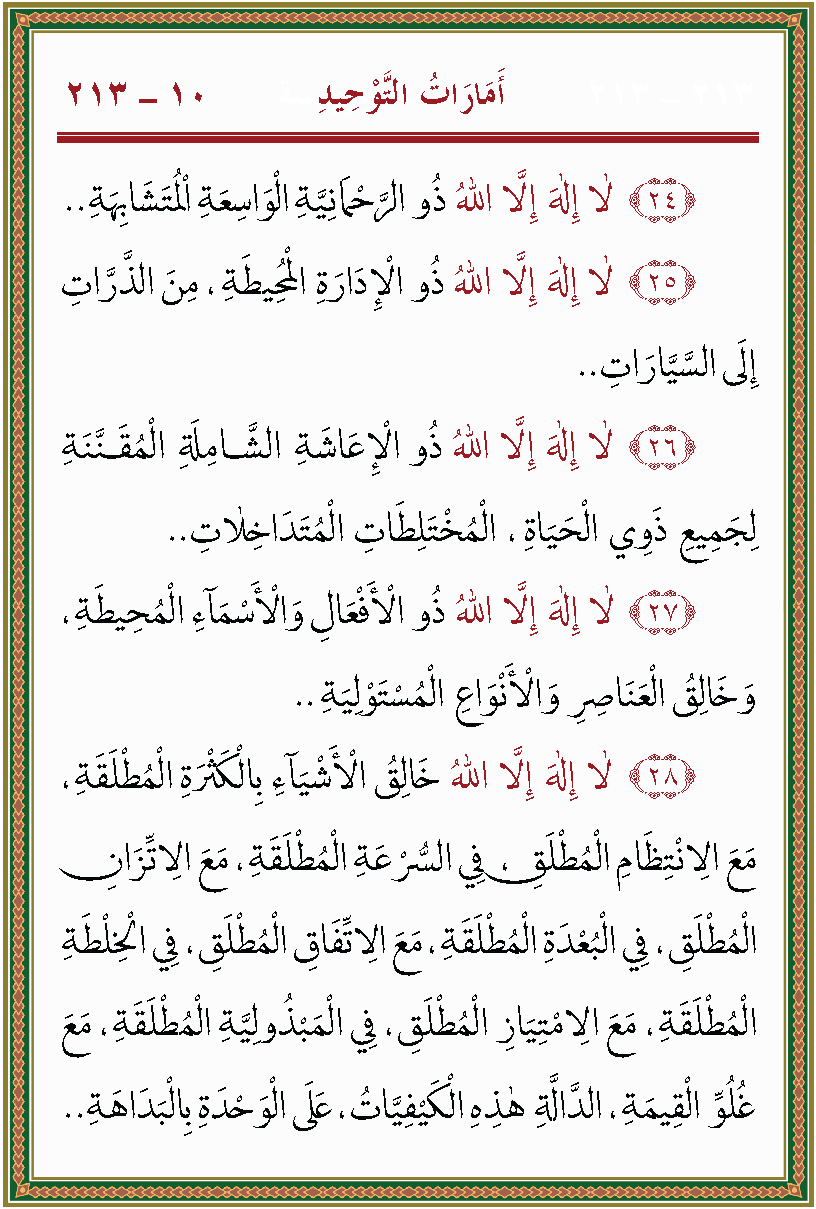 أَمَارَاتُ التَّوْحِيدِ ١٠ – ٢١٣
﴿٢٤﴾ لَا إِلٰهَ إِلَّا اللهُ ذُو الرَّحْمَانِيَّةِ الْوَاسِعَةِ الْمُتَشَابِهَةِ..
﴿٢٥﴾ لَا إِلٰهَ إِلَّا اللهُ ذُو الْإِدَارَةِ الْمُحِيطَةِ ، مِنَ الذَّرَّاتِ
إِلَى السَّيَّارَاتِ..
﴿٢٦﴾ لَا إِلٰهَ إِلَّا اللهُ ذُو الْإِعَاشَةِ الشَّـامِلَةِ الْمُقَـنَّنَةِ
لِجَمِيعِ ذَوِي الْحَيَاةِ ، الْمُخْتَلِطَاتِ الْمُتَدَاخِلَاتِ..
﴿٢٧﴾ لَا إِلٰهَ إِلَّا اللهُ ذُو الْأَفْعَالِ وَالْأَسْمَآءِ الْمُحِيطَةِ ،
وَخَالِقُ الْعَنَاصِرِ وَالْأَنْوَاعِ الْمُسْتَوْلِيَةِ..
﴿٢٨﴾ لَا إِلٰهَ إِلَّا اللهُ خَالِقُ الْأَشْيَآءِ بِالْكَثْرَةِ الْمُطْلَقَةِ ،
مَعَ الِانْتِظَامِ الْمُطْلَقِ ، فِي السُّرْعَةِ الْمُطْلَقَةِ ، مَعَ الِاتِّزَانِ
الْمُطْلَقِ ، فِي الْبُعْدَةِ الْمُطْلَقَةِ ، مَعَ الِاتِّفَاقِ الْمُطْلَقِ ، فِي الْخِلْطَةِ
الْمُطْلَقَةِ ، مَعَ الِامْتِيَازِ الْمُطْلَقِ ، فِي الْمَبْذُولِيَّةِ الْمُطْلَقَةِ ، مَعَ
غُلُوِّ الْقِيمَةِ ، الدَّالَّةِ هٰذِهِ الْكَيْفِيَّاتُ ، عَلَى الْوَحْدَةِ بِالْبَدَاهَةِ..